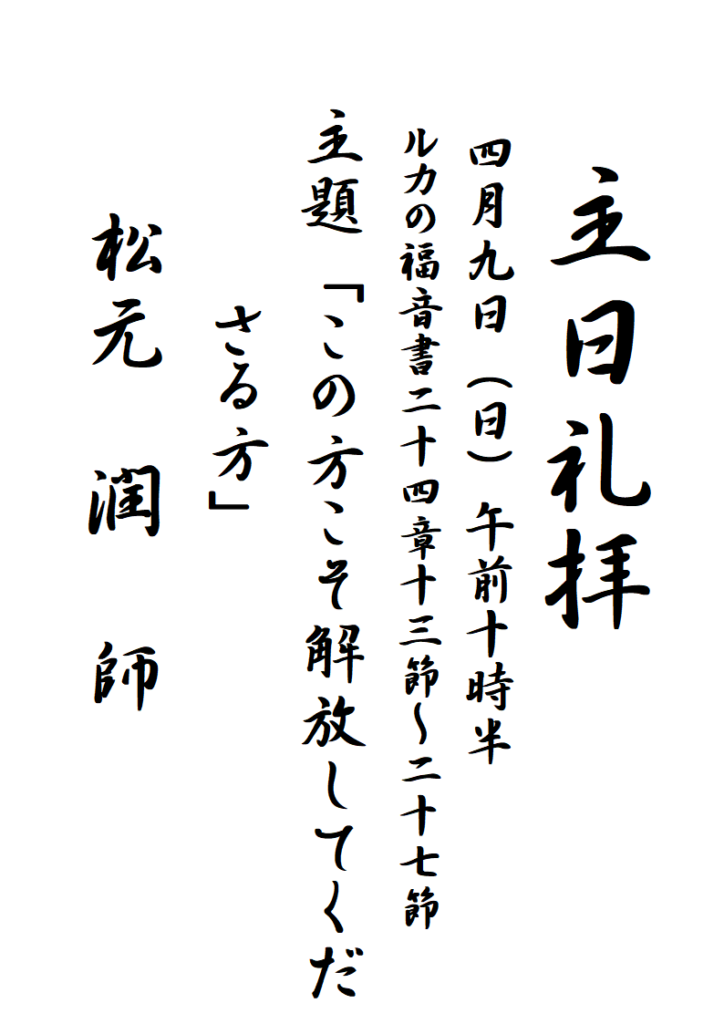 主日礼拝
四月九日（日）午前十時半
ルカの福音書二十四章十三節～二十七節
主題「この方こそ解放してくだ
さる方」
松元　潤　師